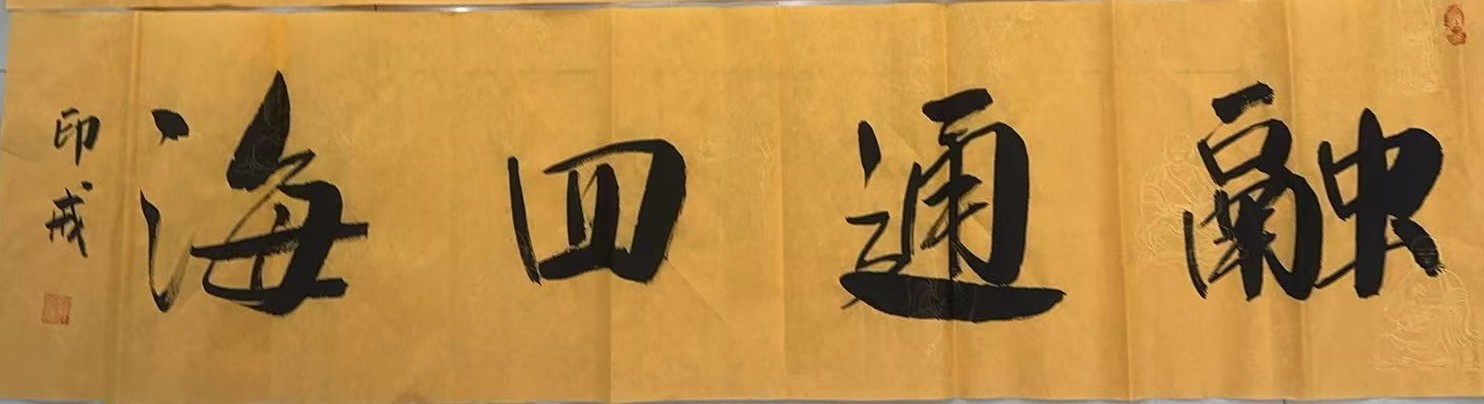 融通四海
印戒